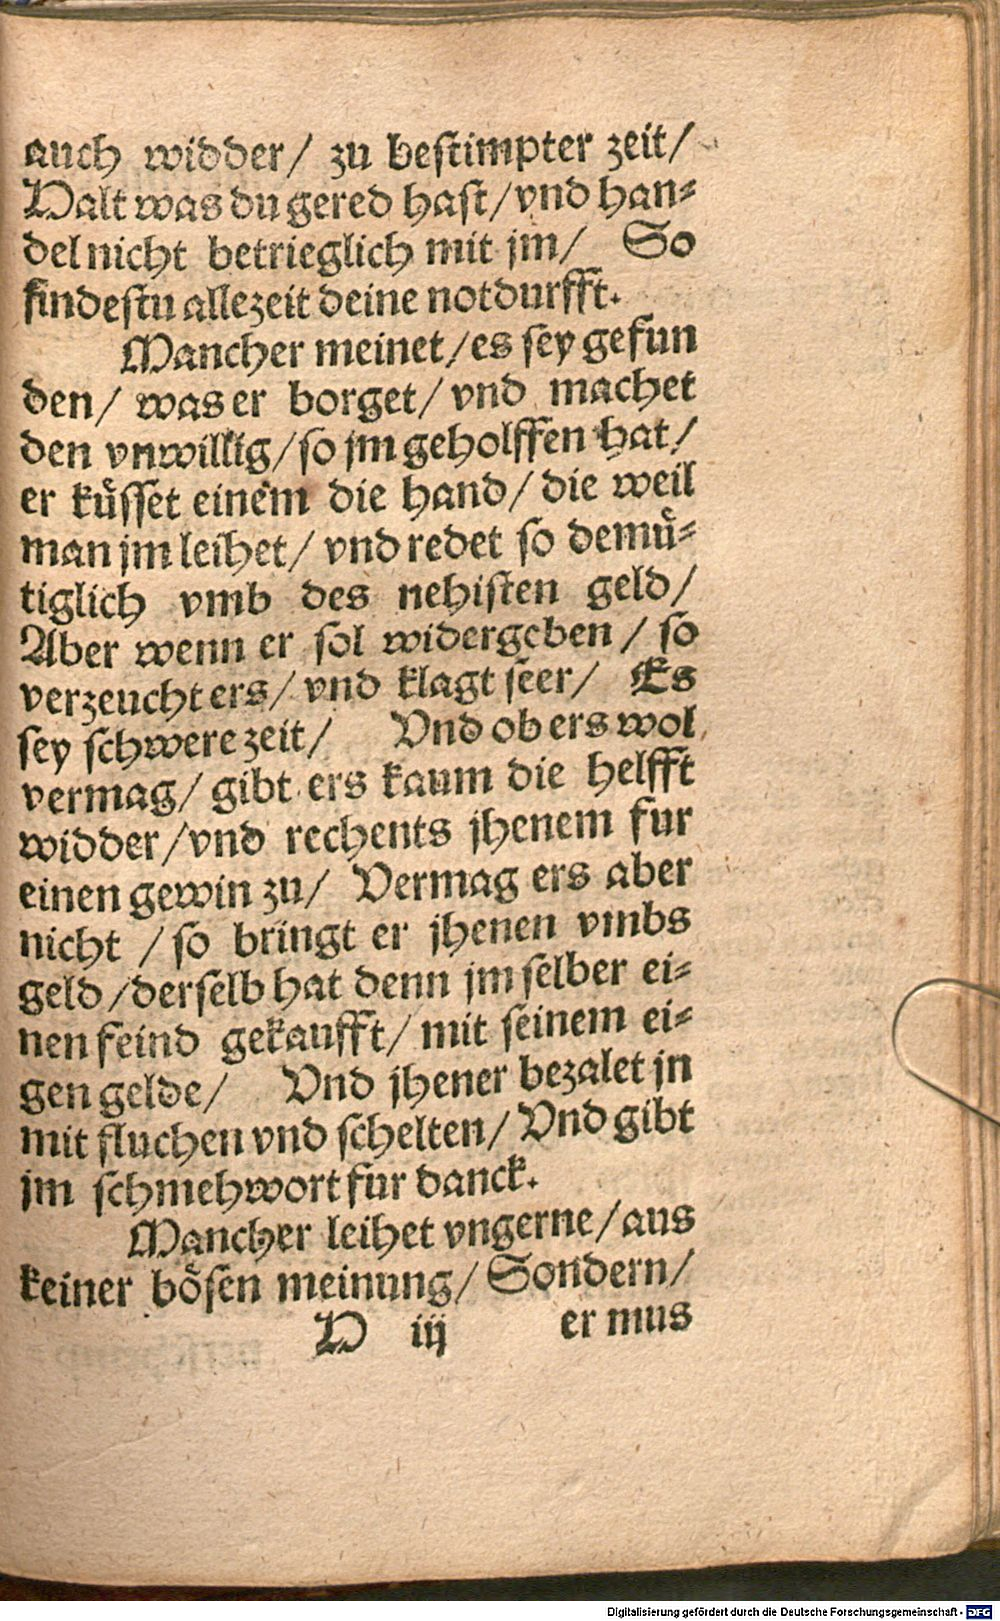 auch widder/ zu bestimpter zeit/
Halt was du gered hast/vnd han⸗
del nicht betrieglich mit jm/ So
findestu allezeit deine notdurfft.
Mancher meinet/es sey gefun
den/ was er borget/ vnd machet
den vnwillig/so jm geholffen hat/
er küsset einem die hand/ die weil
man jm leihet/ vnd redet so demü⸗
tiglich vmb des nehisten geld/
Aber wenn er sol widergeben / so
verzeucht ers/ vnd klagt seer/ Es
sey schwere zeit/ Vnd ob ers wol
vermag/ gibt ers kaum die helfft
widder/vnd rechents jhenem fur
einen gewin zu/ Vermag ers aber
nicht /so bringt er jhenen vmbs
geld/derselb hat denn jm selber ei⸗
nen feind gekaufft/ mit seinem ei⸗
gen gelde/ Vnd jhener bezalet jn
mit fluchen vnd schelten/ Vnd gibt
jm schmehwort fur danck.
Mancher leihet vngerne/aus
keiner bösen meinung/ Sondern/
H iij er mus
Digitalisierung gefördert durch die Deutsche Forschungsgemeinschaft - DFG